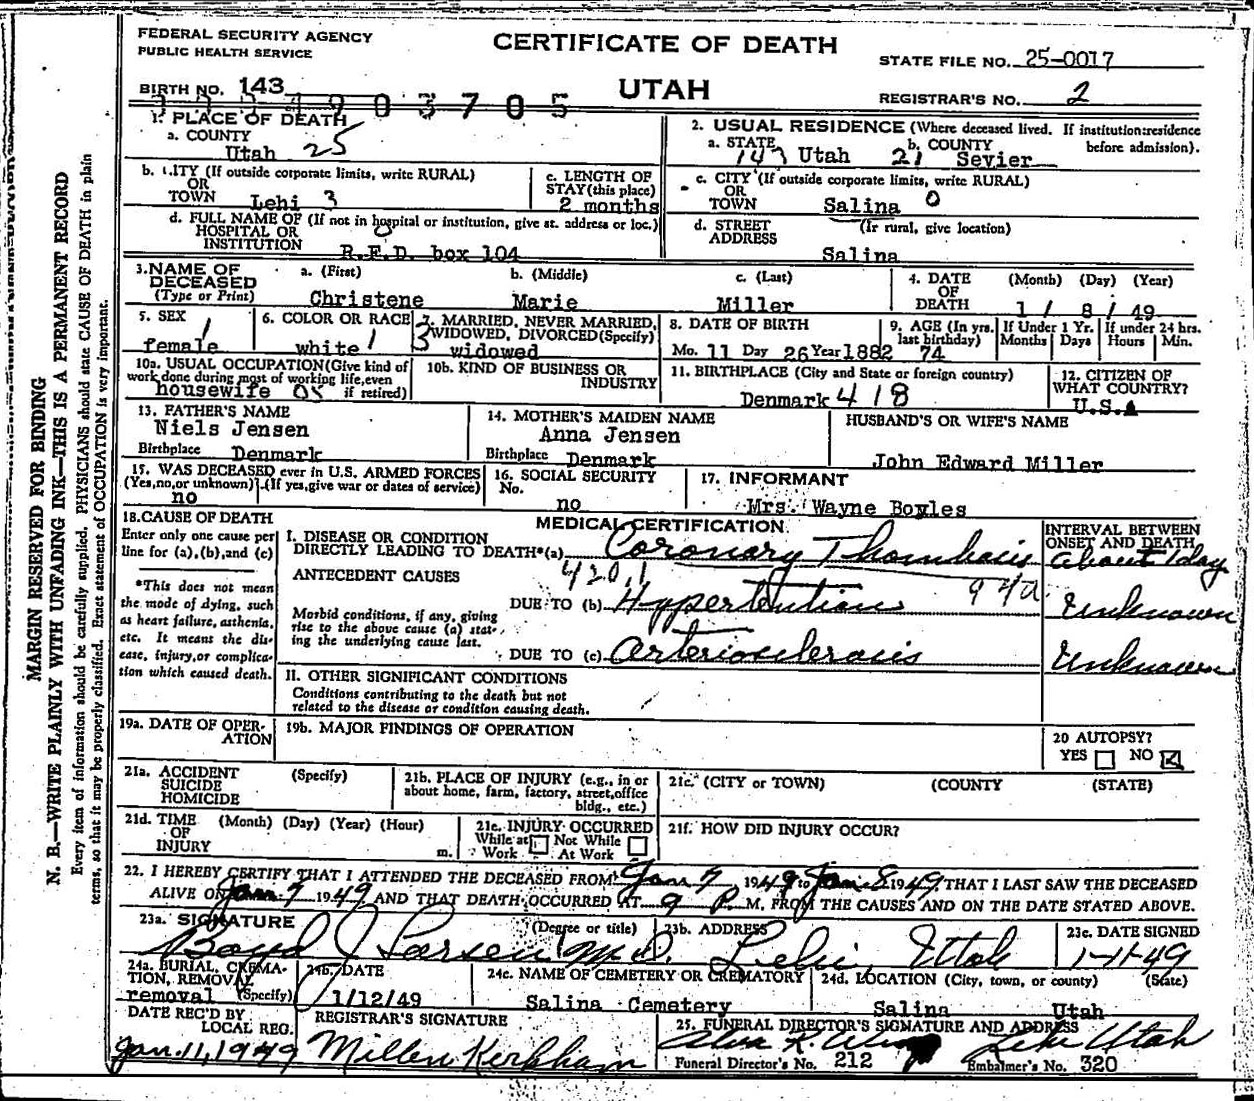 FEDERAL SECURITY AGENCY
PUBLIC HEALTH SERVICE
CERTIFICATE OF DEATH
STATE FILE NO. 25-0017
BIRTH NO. 143
UTAH
REGISTRAR'S NO. 2
1. PLACE OF DEATH
a. COUNTY
Utah 25
2. USUAL RESIDENCE (Where deceased lived. If institution: residence before admission).
a. STATE 143 Utah b. COUNTY 21 Sevier
b. CITY (If outside corporate limits, write RURAL)
OR
TOWN Lehi 3
c. LENGTH OF
STAY (this place)
2 months
c. CITY (If outside corporate limits, write RURAL)
OR
TOWN Salina 0
d. FULL NAME OF (If not in hospital or institution, give st. address or loc.)
HOSPITAL OR
INSTITUTION
R.F.D. box 104
d. STREET (If rural, give location)
ADDRESS
Salina
3. NAME OF
DECEASED
(Type or Print)
a. (First) b. (Middle) c. (Last)
Christene Marie Miller
4. DATE (Month) (Day) (Year)
OF
DEATH 1 / 8 / 49
5. SEX 1
female
6. COLOR OR RACE
white 1
7. MARRIED, NEVER MARRIED,
WIDOWED, DIVORCED (Specify)
3 widowed
8. DATE OF BIRTH
Mo. 11 Day 26 Year 1882
9. AGE (In yrs.
last birthday)
74
If Under 1 Yr.
Months Days
If under 24 hrs.
Hours Min.
10a. USUAL OCCUPATION (Give kind of
work done during most of working life, even
if retired)
housewife
10b. KIND OF BUSINESS OR
INDUSTRY
11. BIRTHPLACE (City and State or foreign country)
Denmark 418
12. CITIZEN OF
WHAT COUNTRY?
U.S.A
13. FATHER'S NAME
Niels Jensen
Birthplace Denmark
14. MOTHER'S MAIDEN NAME
Anna Jensen
Birthplace Denmark
HUSBAND'S OR WIFE'S NAME
John Edward Miller
15. WAS DECEASED ever in U.S. ARMED FORCES
(Yes, no, or unknown) (If yes, give war or dates of service)
no
16. SOCIAL SECURITY
No.
no
17. INFORMANT
Mrs. Wayne Boyles
18. CAUSE OF DEATH
Enter only one cause per
line for (a), (b), and (c)
*This does not mean
the mode of dying, such
as heart failure, asthenia,
etc. It means the dis-
ease, injury, or complica-
tion which caused death.
MEDICAL CERTIFICATION
INTERVAL BETWEEN
ONSET AND DEATH
I. DISEASE OR CONDITION
DIRECTLY LEADING TO DEATH*(a) Coronary Thombosis about 1 day
ANTECEDENT CAUSES 420.1
94a
DUE TO (b) Hypertention Unknown
Morbid conditions, if any, giving
rise to the above cause (a) stat-
ing the underlying cause last.
DUE TO (c) Arteriosclerosis Unknown
II. OTHER SIGNIFICANT CONDITIONS
Conditions contributing to the death but not
related to the disease or condition causing death.
19a. DATE OF OPER-
ATION
19b. MAJOR FINDINGS OF OPERATION
20 AUTOPSY?
YES NO
21a. ACCIDENT (Specify)
SUICIDE
HOMICIDE
21b. PLACE OF INJURY (e.g., in or
about home, farm, factory, street, office
bldg., etc.)
21c. (CITY or TOWN) (COUNTY) (STATE)
21d. TIME (Month) (Day) (Year) (Hour)
OF
INJURY m.
21e. INJURY OCCURRED
While at Not While
Work At Work
21f. HOW DID INJURY OCCUR?
22. I HEREBY CERTIFY THAT I ATTENDED THE DECEASED FROM Jan 7 1949 to Jan 8 1949, THAT I LAST SAW THE DECEASED
ALIVE ON Jan 7 1949 AND THAT DEATH OCCURRED AT 9 P. M, FROM THE CAUSES AND ON THE DATE STATED ABOVE.
23a. SIGNATURE (Degree or title) 23b. ADDRESS 23c. DATE SIGNED
Boyd J Larsen M.D. Lehi, Utah 1-11-49
24a. BURIAL, CREMA-
TION, REMOVAL
removal (Specify)
24b. DATE
1/12/49
24c. NAME OF CEMETERY OR CREMATORY
Salina Cemetery
24d. LOCATION (City, town, or county) (State)
Salina Utah
DATE REC'D BY
LOCAL REG.
Jan. 11, 1949
REGISTRAR'S SIGNATURE
Millen Kerkham
25. FUNERAL DIRECTOR'S SIGNATURE AND ADDRESS
Lehi Utah
Funeral Director's No. 212 Embalmer's No. 320
MARGIN RESERVED FOR BINDING
N. B.—WRITE PLAINLY WITH UNFADING INK—THIS IS A PERMANENT RECORD
Every item of information should be carefully supplied. PHYSICIANS should state CAUSE OF DEATH in plain
terms, so that it may be properly classified. Exact statement of OCCUPATION is very important.